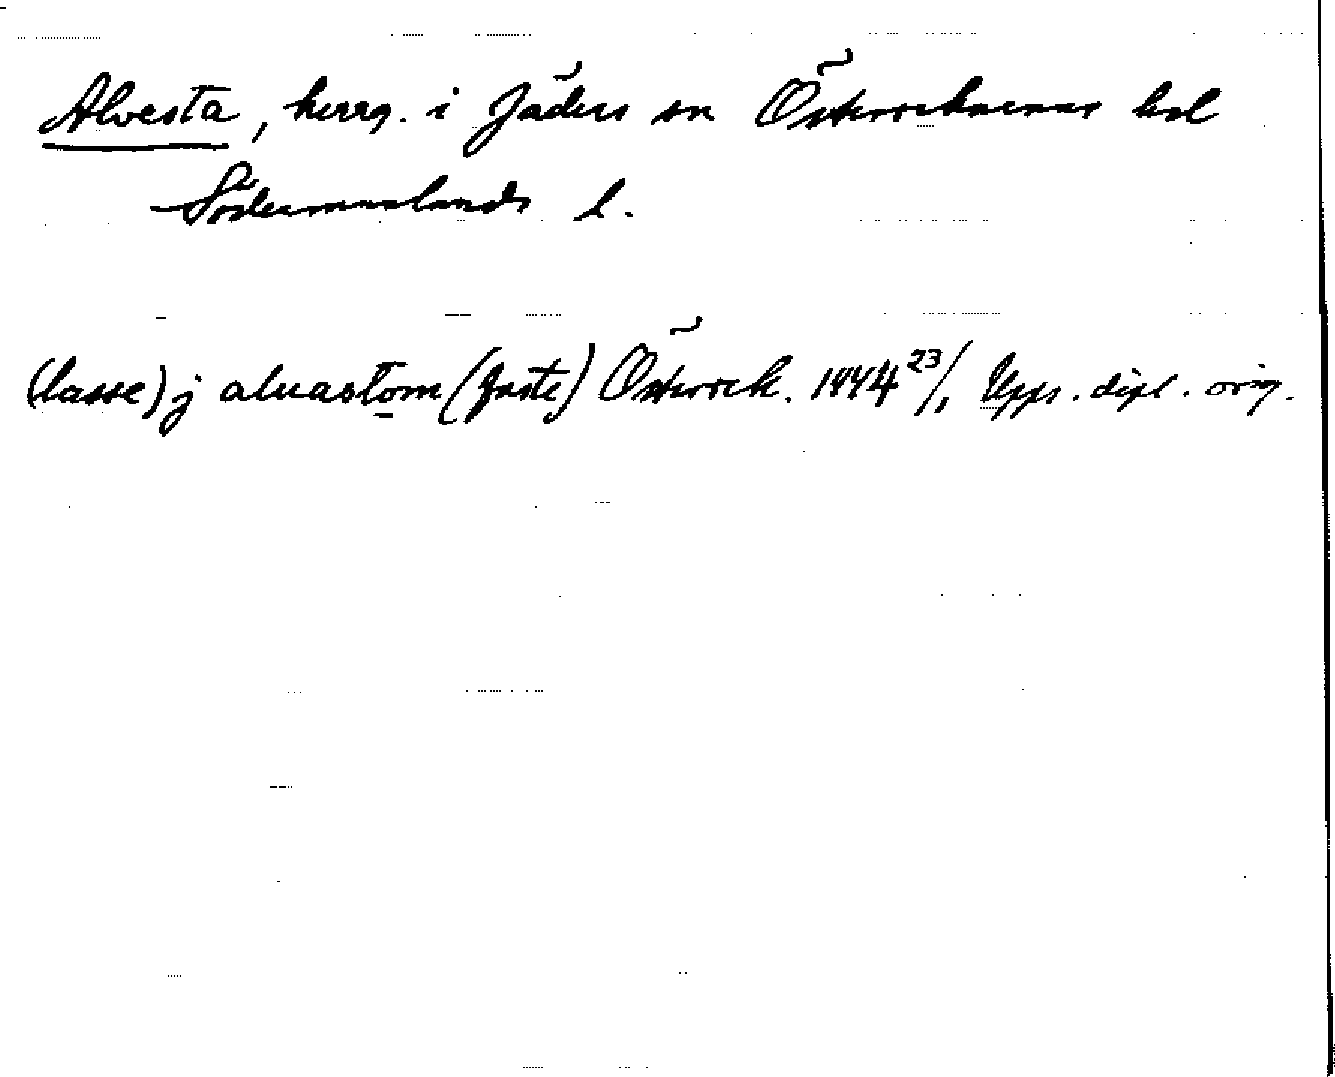 Alvesta, herrg. i Jäders sn Österrekarnes hd
Södermanlands l.
(lasse) j aluastom (faste) Österrek. 1444 23/1 Upps. dipl. orig.